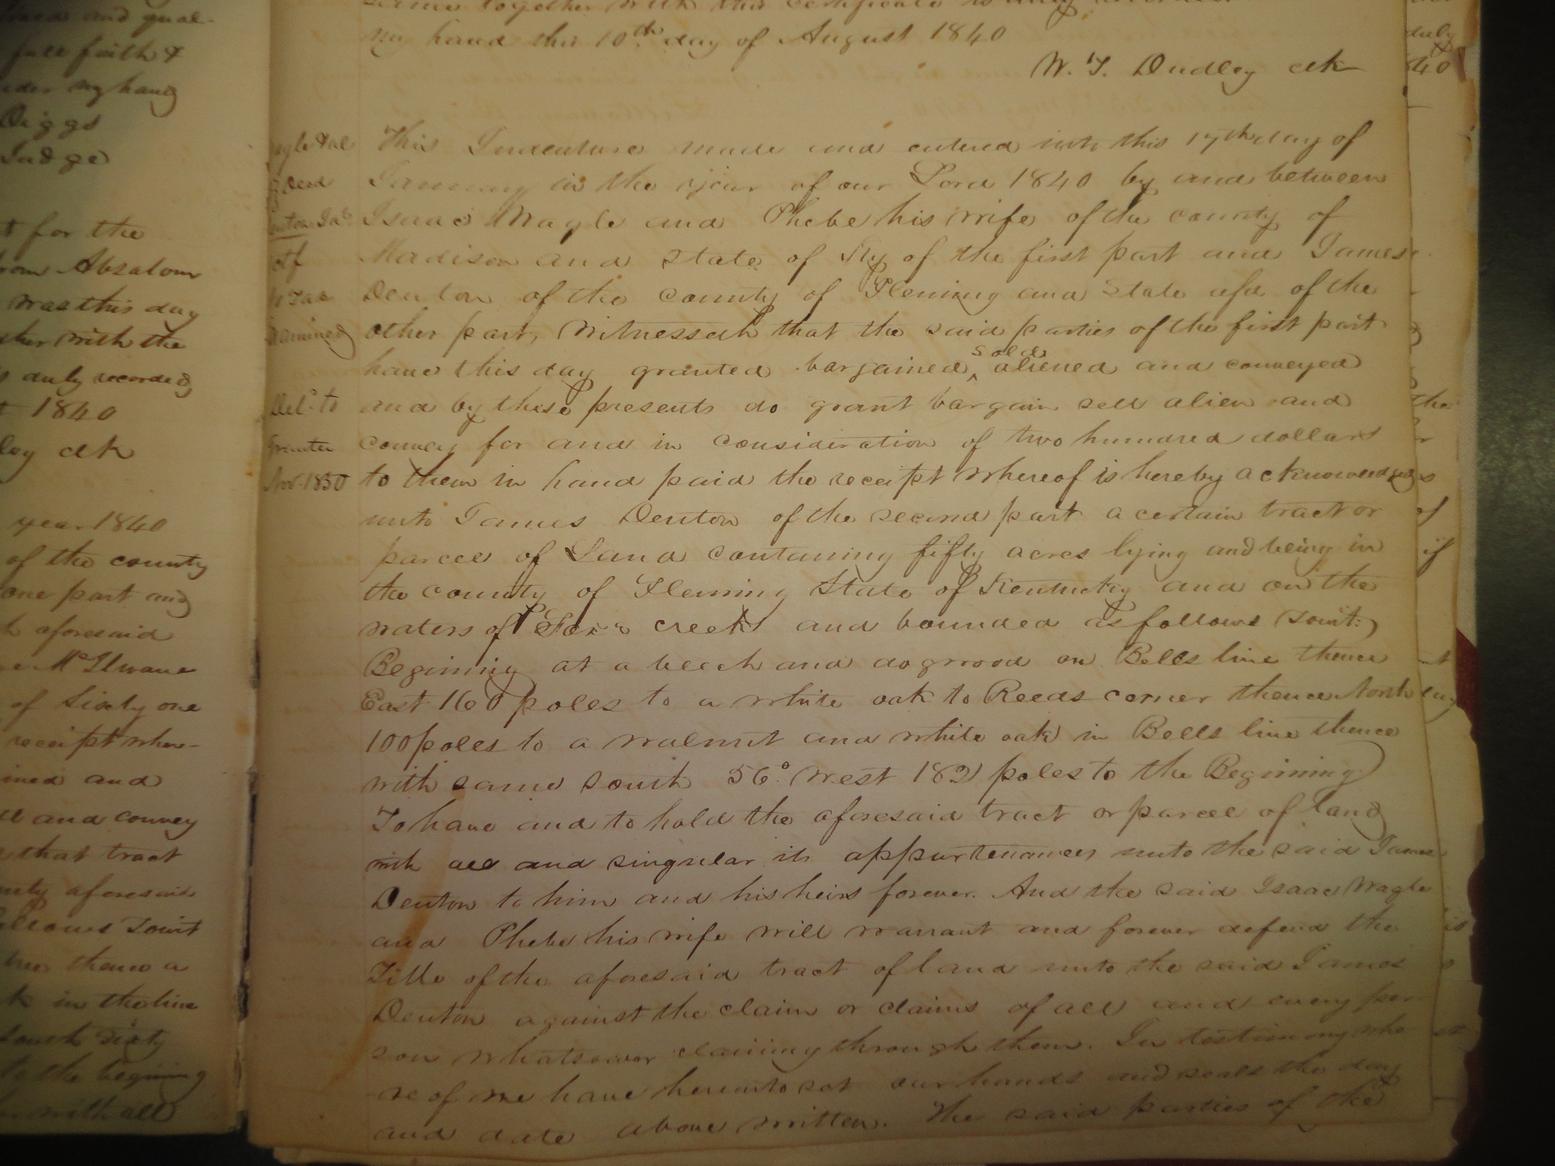 same together with this certificate is duly recorded
my hand this 10th day of August 1840
W. T. Dudley clk
This Indenture made and entered into this 17th day of
January in the year of our Lord 1840 by and between
Isaac Wagle and Phebe his wife of the county of
Madison and State of Ky of the first part and James
Denton of the county of Fleming and State afd of the
other part, Witnesseth that the said parties of the first part
have this day granted bargained, sold aliened and conveyed
and by these presents do grant bargain sell alien and
convey for and in consideration of two hundred dollars
to them in hand paid the receipt whereof is hereby acknowledged
unto James Denton of the second part a certain tract or
parcel of Land containing fifty acres lying and being in
the county of Fleming State of Kentucky and on the
waters of Fox's creek and bounded as follows (towit:)
Beginning at a beech and dogwood on Bells line thence
East 160 poles to a white oak to Reeds corner thence North
100 poles to a walnut and white oak in Bells line thence
with same south 56° West 182 poles to the Beginning
To have and to hold the aforesaid tract or parcel of land
with all and singular its appurtenances unto the said James
Denton to him and his heirs forever. And the said Isaac Wagle
and Phebe his wife will warrant and forever defend the
Title of the aforesaid tract of land unto the said James
Denton against the claim or claims of all and every per-
son whatsoever claiming through them. In testimony whe
re of we have hereunto set our hands and seals the day
and date above written. The said parties of the
deed
Del.d to
Grantee
Nov. 1850
full faith &
under my hand
Diggs
Judge
t for the
from Absalom
was this day
with the
duly recorded
1840
clk
year 1840
of the county
one part and
aforesaid
McIlwane
of Sixty one
receipt where-
and
and convey
that tract
aforesaid
follows towit
thence a
in the line
South sixty
to the begining
with all